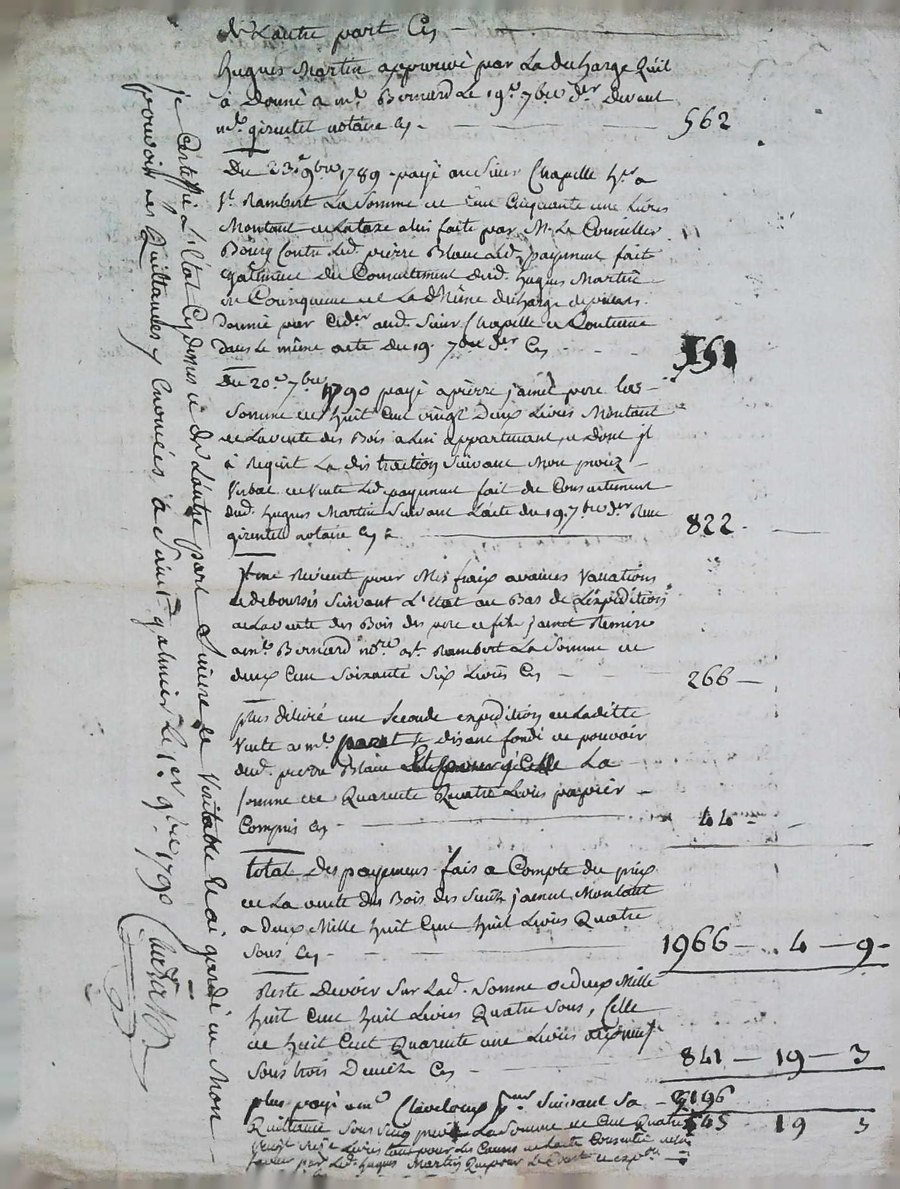 de Lautre part Cy
hugues Martin approuvé par La decharge Quil
à Donné a mr. Bernard Le 19e. 7bre der. Devant
me. girentet notaire Cy - 562
Du 23e. 9bre 1789 payé au Sieur Chapelle hr. a
St. Rambert La Somme de Cent Cinquante une Livres
Montant de La taxe a lui faite par Mr. Le Conseiller
Bourg Contre Led. pierre Blanc Led. payement fait
Ensuite du Consentement dud. hugues Martin
Donnée par Led. aud. Sieur Chapelle et Contenue
Dans Le même acte du 19. 7bre der. Cy - 151
Du 20e. 7bre 1790 payé a pierre jamet pere La
Somme de huit Cent vingt Deux Livres Montant
de La vente des Bois a Lui appartenant, et Dont jl
à Requit La distraction Suivant Mon procez
verbal de vente Led. payement fait du Consentement
dud. hugues Martin Suivant Lacte du 19. 7bre der. Reçu
girentet notaire Cy - 822 -
jl me Revient pour Mes fraix avances vaccations
et deboursés Suivant L'état au Bas de L'expédition
de La vente des Bois des pere et fils jamet Remise
a mr. Bernard nore. a St. Rambert La Somme de
deux Cent Soixante Six Livres Cy - 266 -
plus delivré une Seconde expedition de Laditte
Vente a mr. paret Se disant fondé de pouvoir
dud. pierre Blanc La
Somme de Quarente Quatre Livres papier
Compris Cy - 44 -
total Des payemens fais a Compte du prix
de La vente des Bois des Sieurs jamet Montant
a Deux Mille huit Cent huit Livres Quatre
Sous Cy - 1966 - 4 - 9 -
Reste Devoir Sur Lad. Somme de deux Mille
huit Cent huit Livres Quatre Sous, Celle
de huit Cent Quarente une Livres dix neuf
Sous trois Deniers Cy - 841 - 19 - 3
plus payé a mr. Claveloux Suivant Sa 196
Quittance Sous Seing privé La Somme de Cent Quatre 645 19 3
vingt Seize Livres tout pour Les Causes de Lacte Consenti
par Led. hugues Martin
je Certiffie L'Etat Cy dessus et de Lautre part Sincere et Veritable et ai gardé en Mon
pouvoir Les Quittances y Enoncées, à Saint galmier Le 1er. 9bre 1790